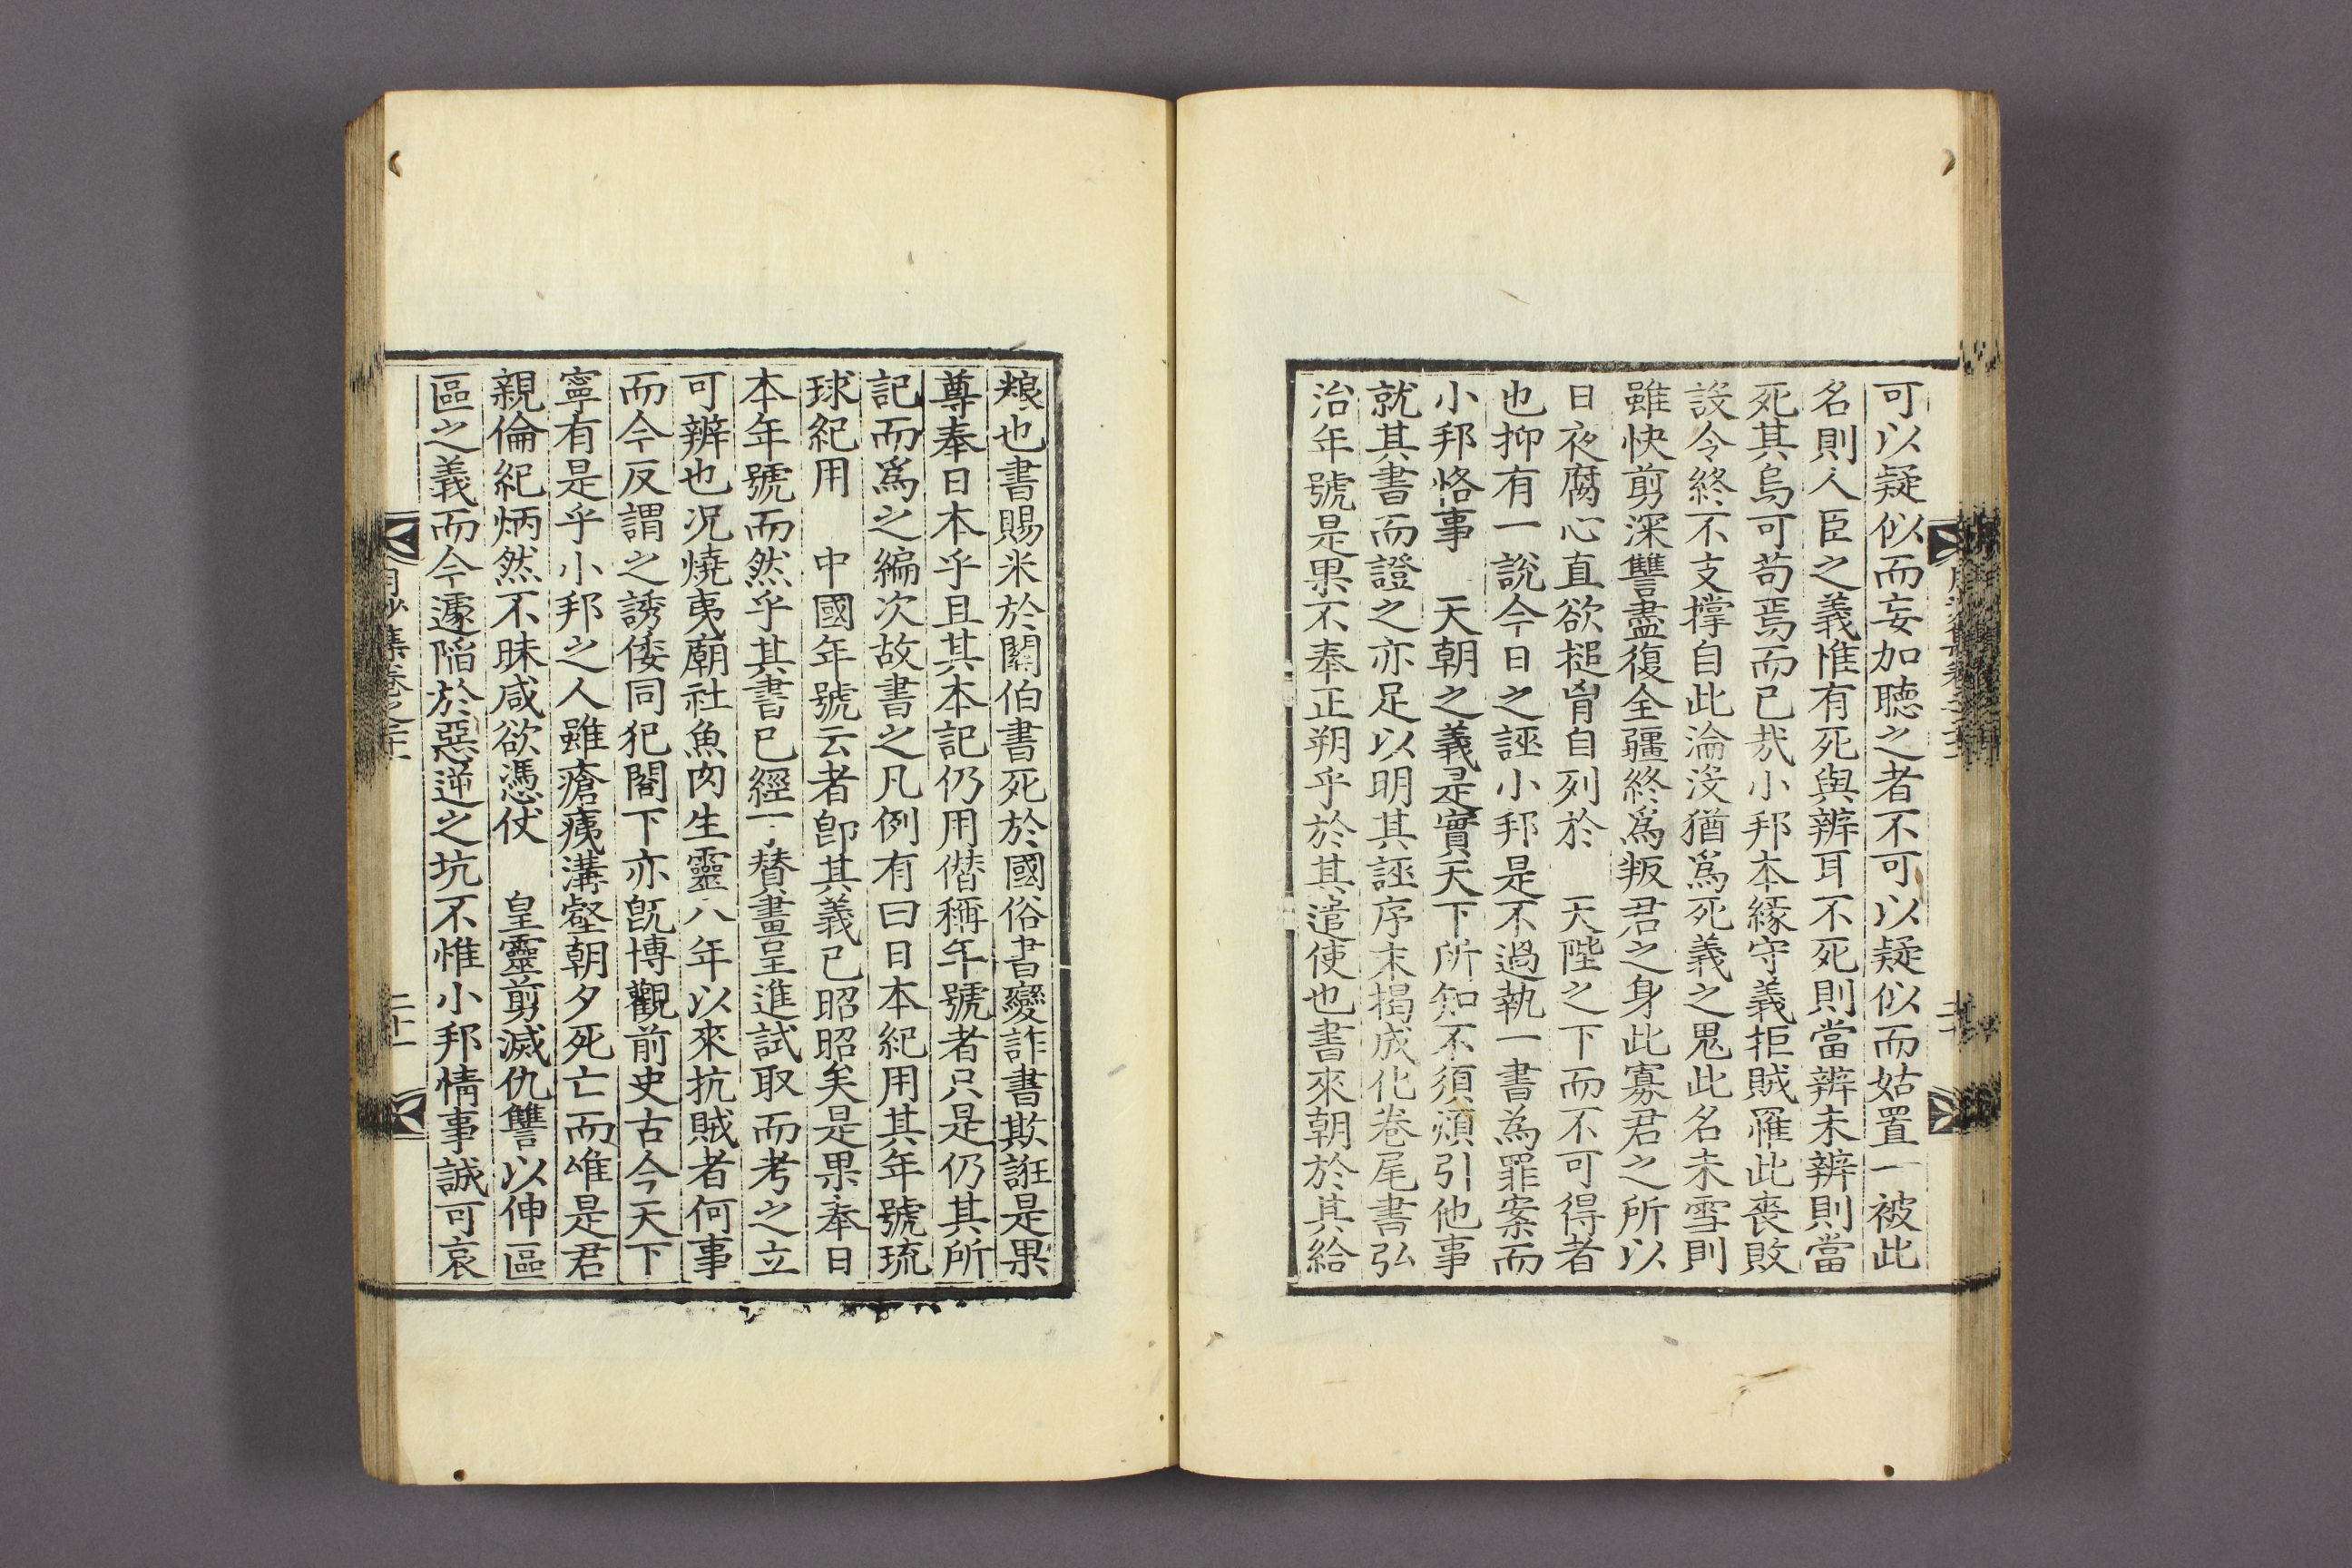 可以疑似而妄加聽之者不可以疑似而姑置一被此
名則人臣之義惟有死與辨耳不死則當辨未辨則當
死其烏可苟焉而已㢤小邦本緣守義拒賊罹此喪敗
設令終不支撐自此淪沒猶爲死義之鬼此名未雪則
雖快剪深讐盡復全疆終爲叛君之身此寡君之所以
日夜腐心直欲搥胷自列於　天陛之下而不可得者
也抑有一說今日之誣小邦是不過執一書為罪案而
小邦恪事　天朝之義是實天下所知不須煩引他事
就其書而證之亦足以明其誣序末揭成化卷尾書弘
治年號是果不奉正朔乎於其遣使也書來朝於其給
粮也書賜米於關伯書死於國俗書變詐書欺誑是果
尊奉日本乎且其本記仍用僭稱年號者只是仍其所
記而爲之編次故書之凡例有曰日本紀用其年號琉
球紀用　中國年號云者卽其義已昭昭矣是果奉日
本年號而然乎其書已經丁賛畫呈進試取而考之立
可辨也况燒夷廟社魚肉生靈八年以來抗賊者何事
而今反謂之誘倭同犯閤下亦旣博觀前史古今天下
寧有是乎小邦之人雖瘡痍溝壑朝夕死亡而唯是君
親倫紀炳然不昧咸欲憑仗　皇靈剪滅仇讐以伸區
區之義而今遽陷於惡逆之坑不惟小邦情事誠可哀
月沙集卷之二十一
二十一